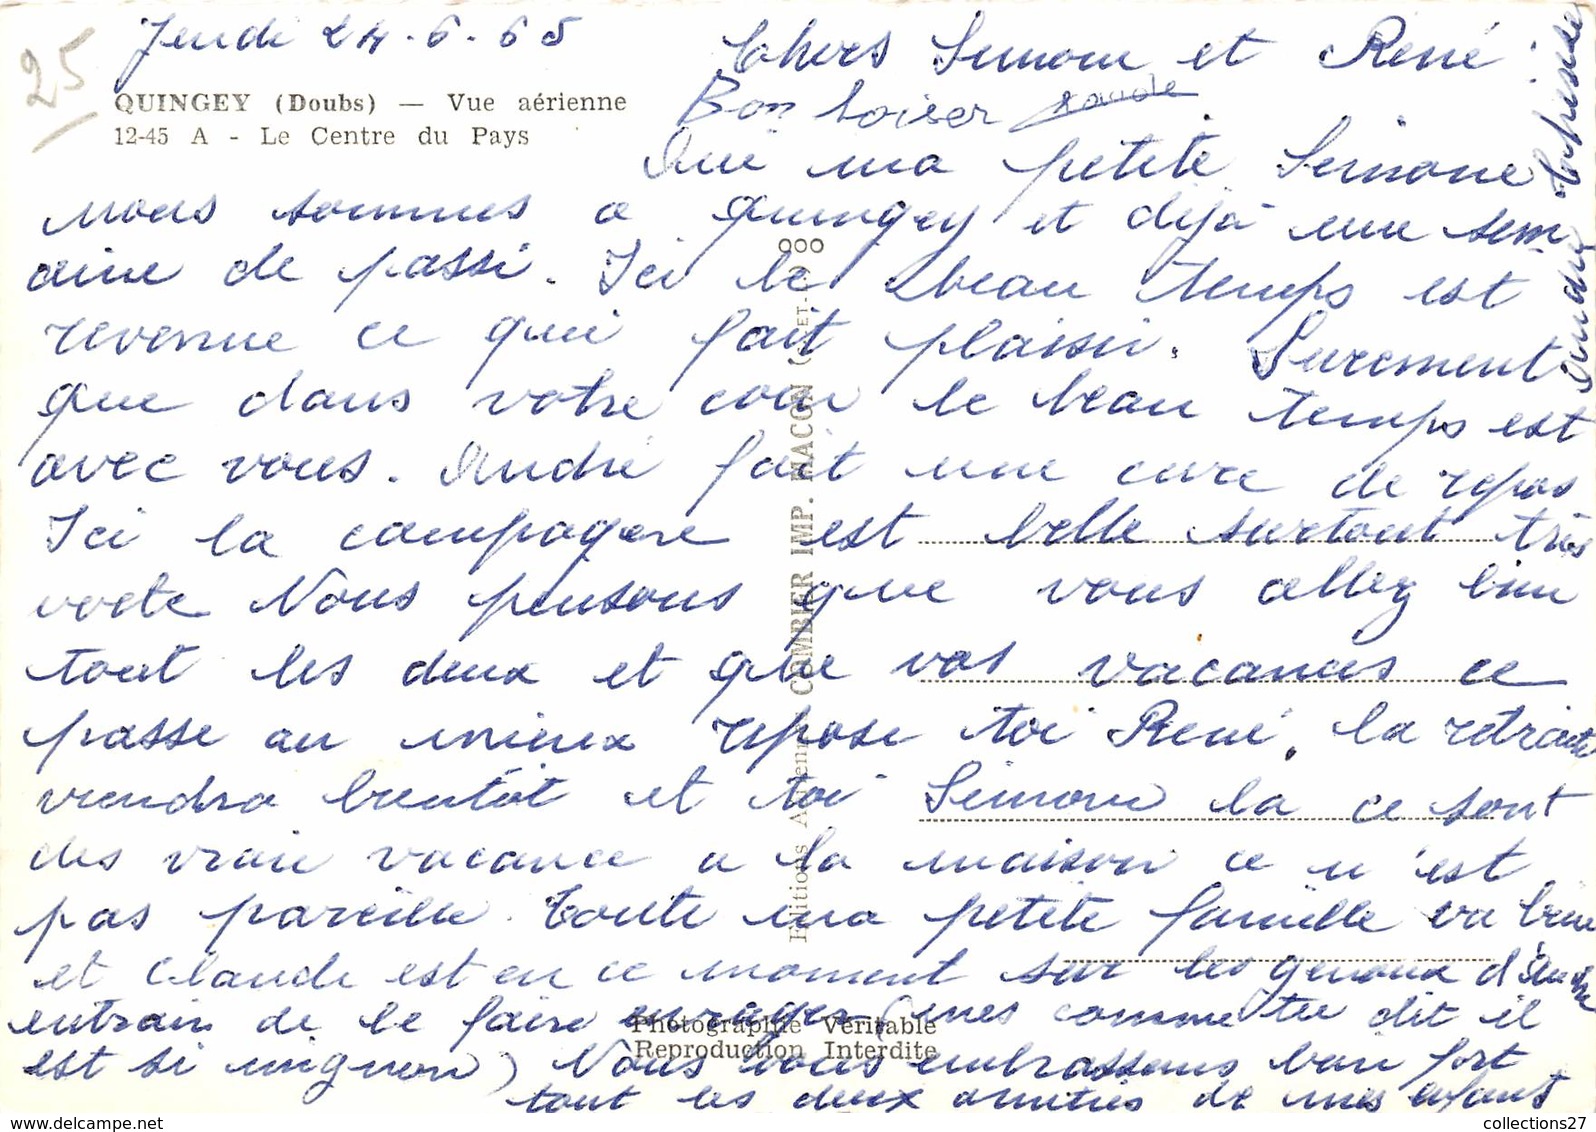 25
Jeudi 24.6.65
Chers Simone et René :
QUINGEY (Doubs) — Vue aérienne
12-45 A - Le Centre du Pays
Bon baiser
Oui ma petite Simone
nous sommes a Quingey et déjà une sem
aine de passé. Ici le beau temps est
revenue ce qui fait plaisir. Surement
que dans votre coin le beau temps est
avec vous. André fait une cure de repos
Ici la campagne est belle surtout très
verte Nous pensons que vous allez bien
tout les deux et que vos vacances ce
passe au mieux repose toi René, la retraite
viendra bientôt et toi Simone la ce sont
des vraie vacance a la maison ce n'est
pas pareille. Toute ma petite famille va bien
et Claude est en ce moment sur les genoux d'André
entrain de le faire enrager (mes comme tu dit il
est si mignon) Nous vous embrassons bien fort
tout les deux amitiés de mes enfants
André
Editions COMBIER IMP. MACON
Photographie Véritable
Reproduction Interdite
collections27